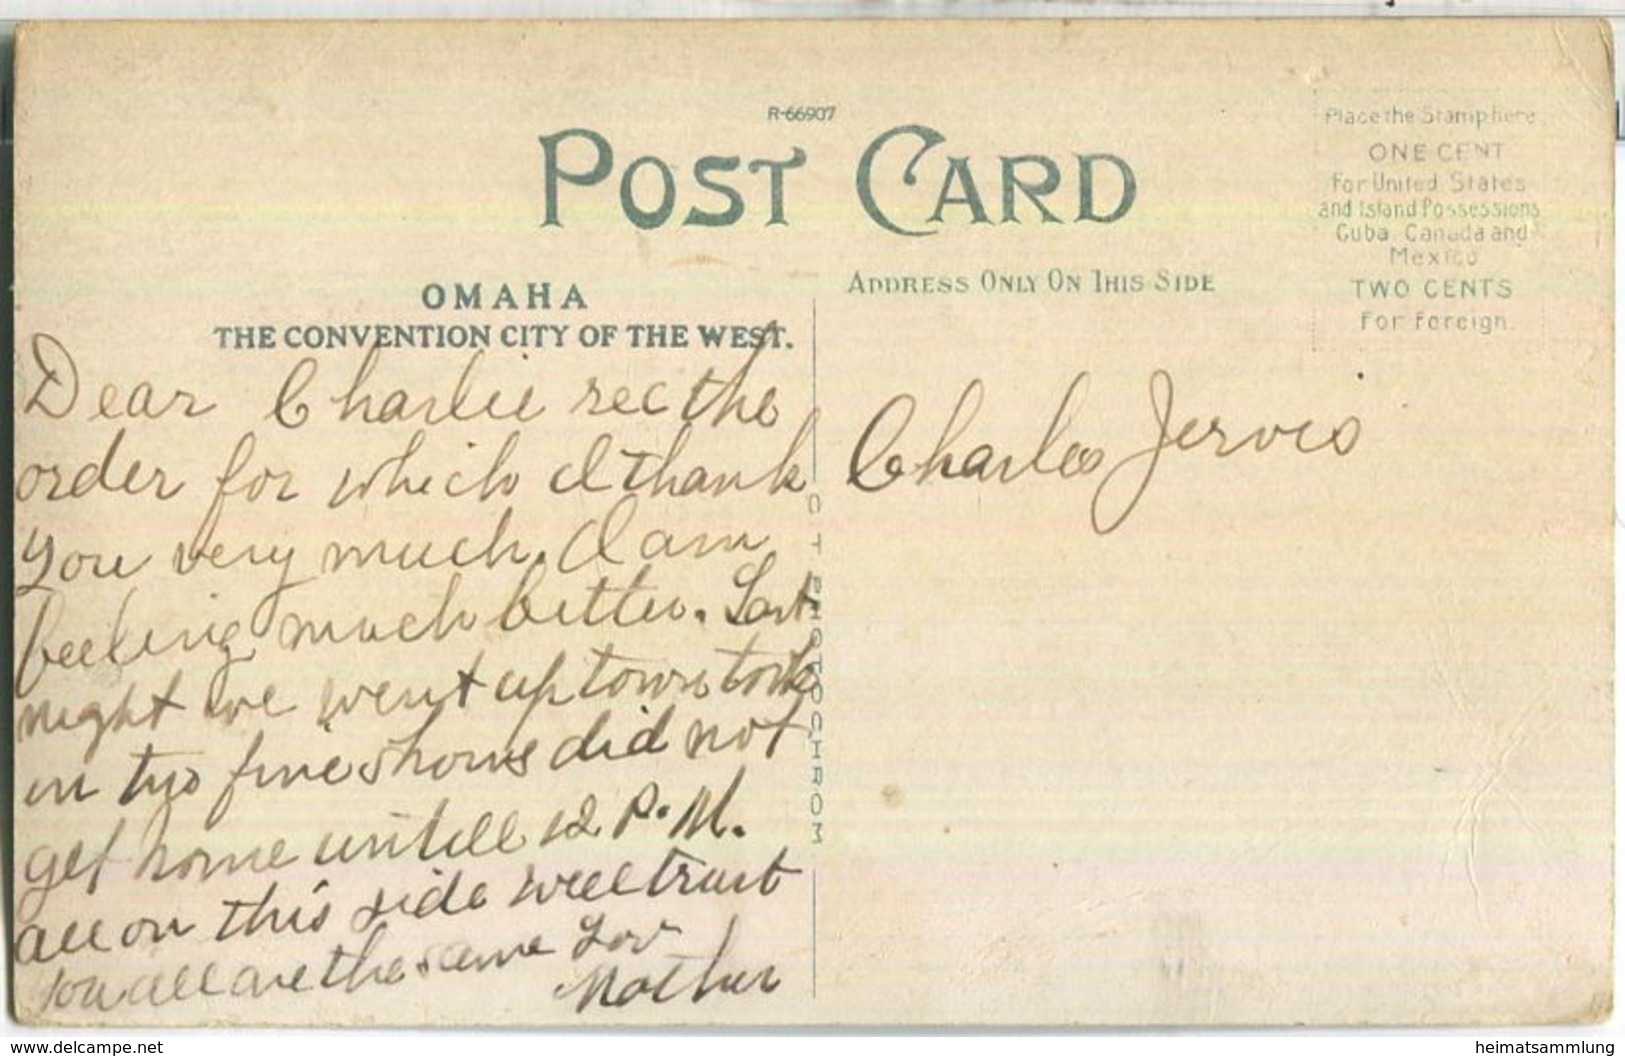 R-66907
POST CARD
Place the Stamp here
ONE CENT
For United States
and Island Possessions
Cuba, Canada and
Mexico
TWO CENTS
For Foreign.
OMAHA
THE CONVENTION CITY OF THE WEST.
ADDRESS ONLY ON THIS SIDE
Dear Charlie rec the
order for which I thank
you very much. I am
feeling much better. Last
night we went up town took
in two fine shows did not
get home untill 12 P.M.
all on this side well trust
you all are the same Lov
Mother
C T PHOTOCHROM
Charles Jervis
www.delcampe.net
heimatsammlung